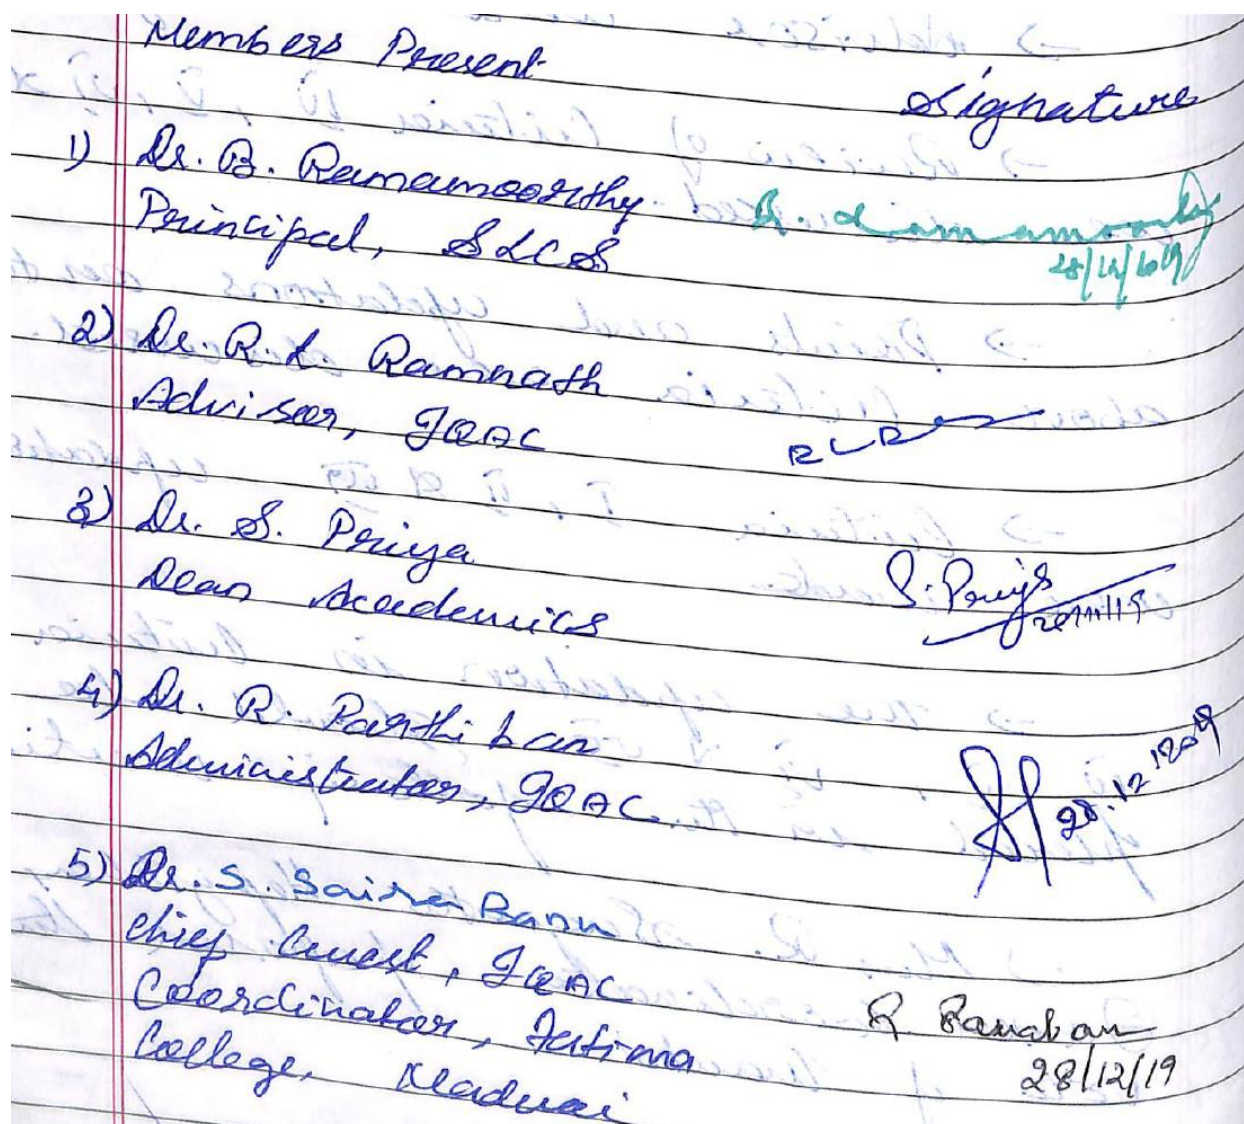 Members Present
Signature
1) Dr. B. Ramamoorthy
Principal, SLCS
B. Ramamoorthy
28/12/2019
2) Dr. R. L Ramnath
Advisor, IQAC
RLR
3) Dr. S. Priya
Dean Academics
S. Priya
4) Dr. R. Parthiban
Administrator, IQAC.
28.12.2019
5) Dr. S. Saira Banu
Chief Guest, IQAC
Coordinator, Fatima
College, Maduai
28/12/19